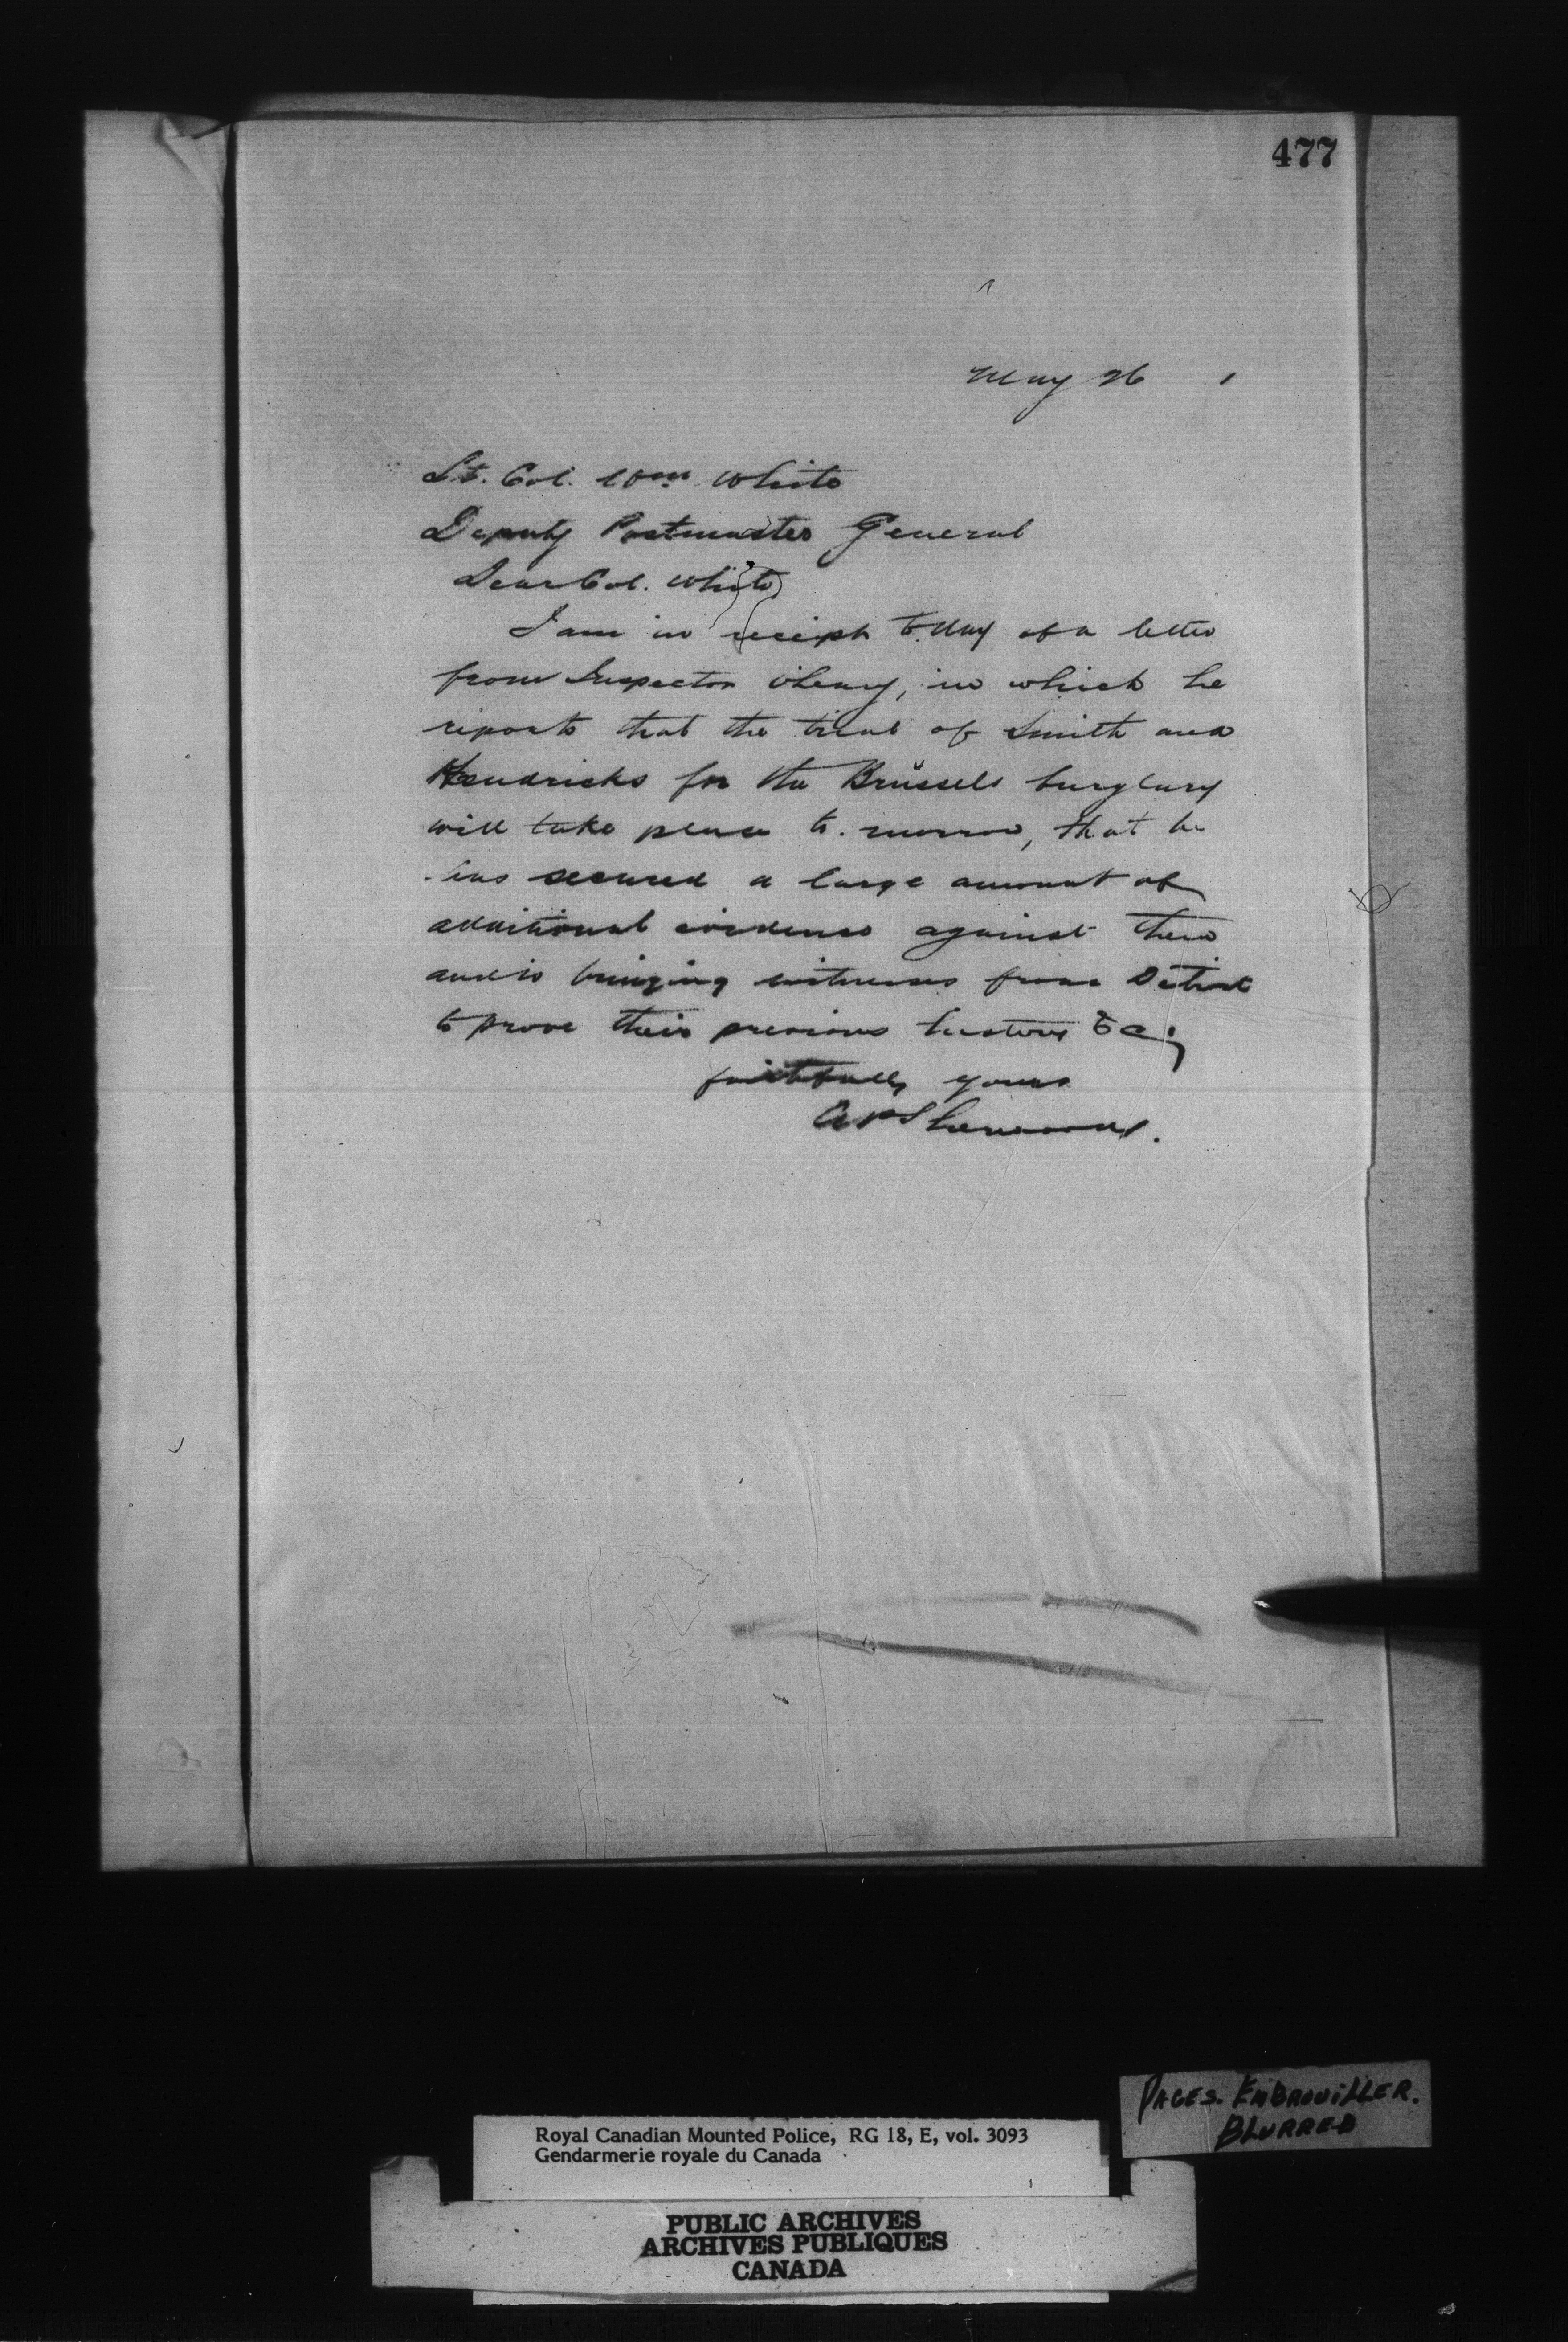 477
May 26 1
Lt. Col. Wm White
Deputy Postmaster General
Dear Col. White
I am in receipt to.day of a letter
from Inspector O'Leary, in which he
reports that the trial of Smith and
Hendricks for the Brussels burglary
will take place to.morrow, that he
has secured a large amount of
additional evidence against them
and is bringing witnesses from Detroit
to prove their previous history &c;
faithfully yours
APSherwood.
Royal Canadian Mounted Police, RG 18, E, vol. 3093
Gendarmerie royale du Canada
PAGES. EMBROUILLER.
BLURRED
PUBLIC ARCHIVES
ARCHIVES PUBLIQUES
CANADA